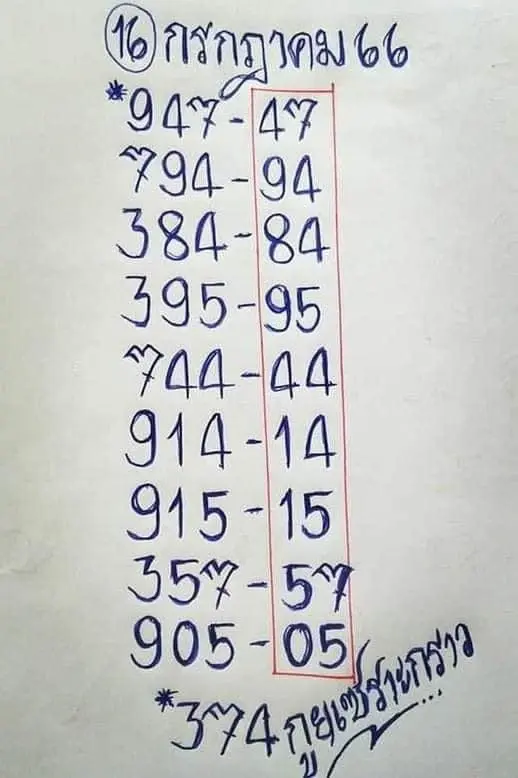 16 กรกฎาคม 66
*947-47
794-94
384-84
395-95
744-44
914-14
915-15
357-57
905-05
*374